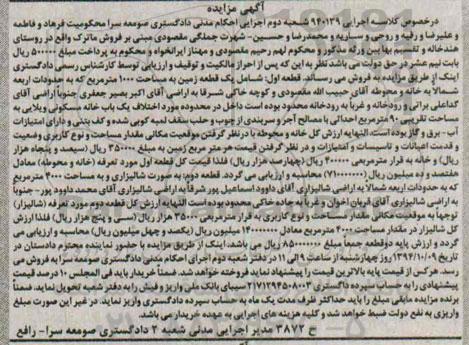 آگهی مزایده
درخصوص کلاسه اجرایی ۹۴۰۱۳۹ شعبه دوم اجرای احکام مدنی دادگستری صومعه سرا محکومیت فرهاد و فاطمه
و علیرضا و رقیه و روحی و ساریه و محمدرضا و حسین- شهرت جملگی مقصودی مبنی بر فروش ماترک واقع در روستای
هندخاله و تقسیم بهای آن بین وراث مذکور و محکوم لهم رحیم مقصودی و مهناز ایرانخواه و محکوم به پرداخت مبلغ ۵۰۰۰۰۰ ریال
بابت نیم عشر در حق دولت می باشد نظر به این که پس از احراز مالکیت و توقیف و ارزیابی توسط کارشناس رسمی دادگستری
اینک از طریق مزایده به فروش می رساند. قطعه اول: شامل یک قطعه زمین به مساحت ۱۰۰۰ مترمربع که به حدودات اربعه
شمالا به خانه و محوطه آقای حبیب الله مقصودی و کوچه خاکی شرقا به اراضی آقای اکبر بصیر جعفری جنوبا اراضی آقای
کداعلی براتی و رودخانه و غربا به رودخانه محدود بوده است داخل در محدوده مورد اختلاف یک باب خانه مسکونی ویلایی به
مساحت تقریبی ۹۰ مترمربع احداثی با مصالح آجر و سربندی از چوب و حلب سقف لمبه کوبی شده و کف بتنی و دارای امتیازات
آب- برق و گاز بوده است. النهایه ارزش کل خانه و محوطه با درنظر گرفتن موقعیت مکانی مقدار مساحت و نوع کاربری وضعیت
و قدمت اعیانات و تاسیسات و امتیازات و در نظر گرفتن قیمت هر متر مربع زمین به مبلغ ۳۵۰۰۰۰ ریال (سیصد و پنجاه هزار
ریال) و خانه به قرار مترمربعی ۴۰۰۰۰۰۰ ریال (چهارصد هزار ریال) فلذا قیمت کل قطعه اول مورد تعرفه (خانه و محوطه) معادل
هفتصد و ده میلیون ریال (۷۱۰۰۰۰۰۰۰) محاسبه و ارزیابی می گردد. قطعه دوم: به صورت شالیزاری و به مساحت ۴۰۰۰ مترمربع
که به حدودات اربعه شمالا به اراضی شالیزاری آقای داوود اسماعیل پور شرقا به اراضی شالیزاری آقای محمد داوود پور- جنوبا
به اراضی شالیزاری آقای قربان اخوان و غربا به جاده خاکی محدود بوده است النهایه ارزش کل قطعه دوم مورد تعرفه (شالیزار)
توجها به موقعیت مکانی مقدار مساحت و نوع کاربری به قرار مترمربعی ۳۵۰۰۰ هزار ریال (سی و پنج هزار ریال) فلذا ارزش
کل شالیزار در مقدار مساحت ۴۰۰۰ مترمربع معادل ۱۴۰۰۰۰۰۰۰ میلیون ریال (یکصد و چهل میلیون ریال) محاسبه و ارزیابی می
گردد و ارزش پایه دوقطعه جمعا مبلغ ۸۵۰۰۰۰۰۰۰ ریال می باشد. اینک از طریق مزایده با حضور نماینده محترم دادستان در
تاریخ ۱۳۹۴/۱۰/۰۹ روز چهارشنبه از ساعت ۹ الی ۱۱ در دفتر شعبه دوم اجرای احکام مدنی دادگستری صومعه سرا به فروش می
رسد. هرکس از قیمت پایه بالاترین قیمت را پیشنهاد نماید فروخته خواهد شد. ضمنا خریدار باید فی المجلس ۱۰ درصد قیمت
پیشنهادی را به حساب سپرده دادگستری ۲۱۷۱۲۹۴۵۰۸۰۰۳ سیبای بانک ملی واریز و فیش را به دفتر شعبه تحویل نماید. ضمنا
برنده مزایده مابقی مبلغ را باید حداکثر ظرف مدت یک ماه به حساب سپرده دادگستری واریز نماید. در غیر این صورت مبلغ
واریزی به نفع دولت ضبط خواهد شد و کلیه هزینه های اجرایی به عهده خریدار می باشد.
ح ۳۸۷۲ مدیر اجرایی مدنی شعبه ۲ دادگستری صومعه سرا- رافع